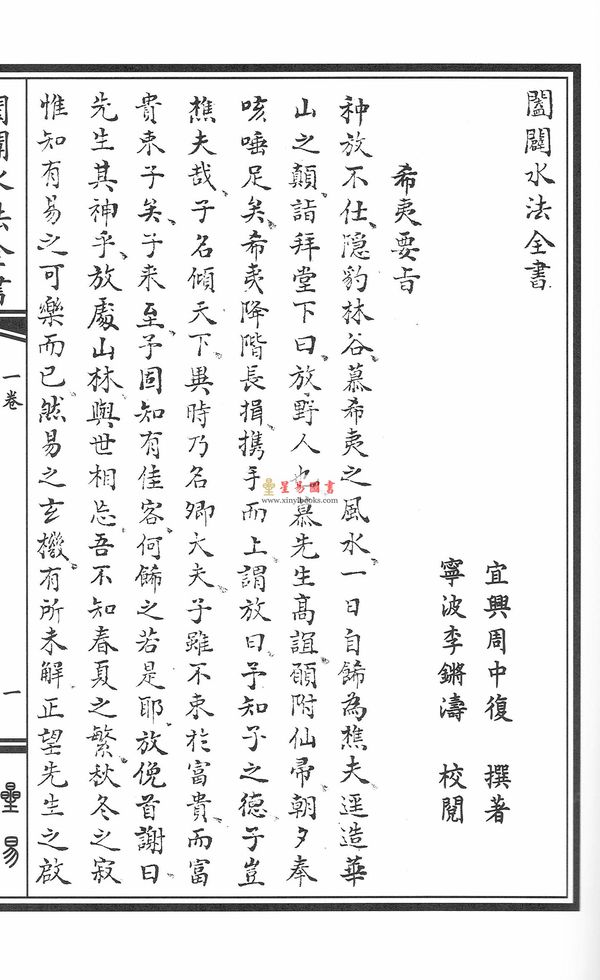 闔闢水法全書
宜興周中復 撰著
寧波李鏘濤 校閱
希夷要旨
种放不仕、隱豹林谷、慕希夷之風水、一日自飾為樵夫、逕造華
山之顛、詣拜堂下曰、放野人也、慕先生高誼、願附仙帚、朝夕奉
咳唾足矣、希夷降階長揖、携手而上、謂放曰、予知子之德、子豈
樵夫哉、子名傾天下、異時乃名卿大夫、子雖不束於富貴、而富
貴束子矣、子来至、予固知有佳客、何飾之若是耶、放俛首謝曰
先生其神乎、放處山林、與世相忘、吾不知春夏之繁、秋冬之寂
惟知有易之可樂而已、然易之玄機、有所未解、正望先生之啟
闔闢水法全書
一卷
一
星易
星易圖書
www.xinyibooks.com